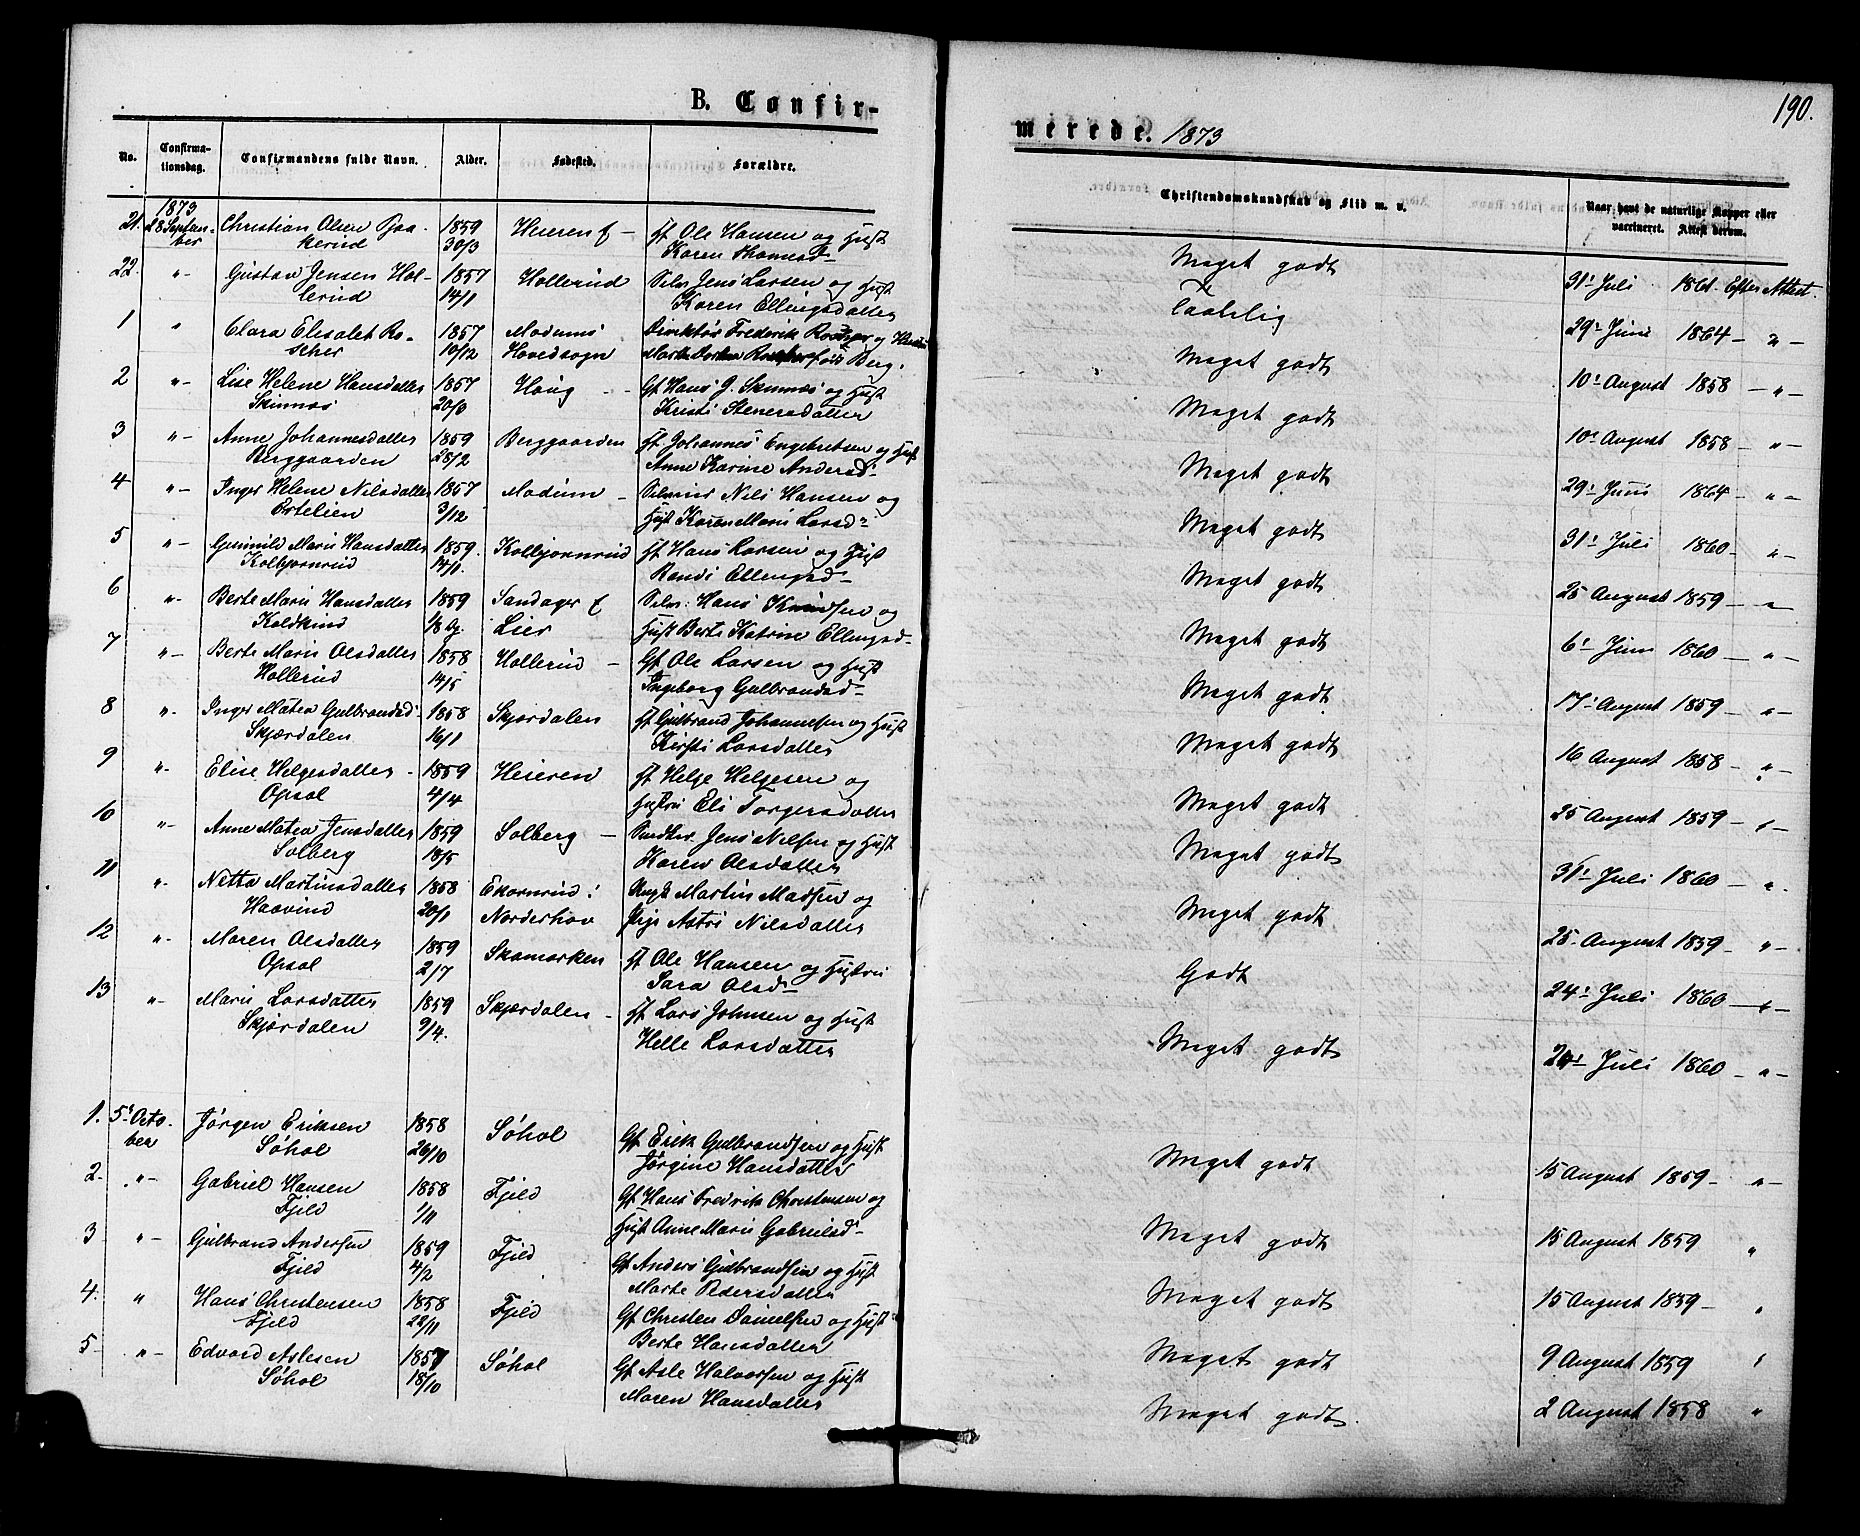 190.
B. Confir-
merede. 1873
No.
Confirma-
tionsdag.
Confirmandens fulde Navn.
Alder.
Fødested.
Forældre.
Christendomskundskab og Flid m. v.
Naar havt de naturlige Kopper eller
vaccineret. Attest derom.
1873
21. 28 Septem- Christian Olsen Baa- 1859 Heieren f Hf Ole Hansen og Hust Meget godt 31' Juli 1861 Efter Attest.
ber kerud 30/3 Karen Thomasd
22. "- Gustav Jensen Hol- 1857 Hollerud Selvr Jens Larsen og Hust Taalelig 29' Juni 1864 - " -
lerud 14/1 Karen Ellingsdatter
1 " Clara Elisabet Ro- 1857 Modums Direktør Frederik Roscher og Meget godt 10' August 1858 - " -
scher 10/12 Hovedsogn født Berg.
2 "- Lise Helene Hansdatter 1857 Houg Gf Hans G. Skinnes og Hust Meget godt 10' August 1858 "-
Skinnes 20/9 Kristi Stenersdatter
3 "- Anne Johannesdatter 1859 Berggaarden Hf Johannes Engebretsen og Hust Meget godt 29' Juni 1864 " -
Berggaarden 28/2 Anne Karine Andersd
4 "- Inger Helene Nilsdatter 1857 Modum - Nils Hansen og Meget godt 31' Juli 1860 "-
Ertelien 3/12 Hust Karen Marie Larsd
5 "- Gunnild Marie Hansdatter 1859. Kolbjørnrud Hf Hans Larsen og Hust Meget godt 25 August 1859 - "
Kolbjørnrud 14/1. Randi Ellingsd-
6 "- Berte Marie Hansdatter 1859 Sandager f Selvr: Hans Knudsen og Meget godt 6' Juni 1860 - "-
Koldkind Lier Hust Berte Katrine Ellingsd-
7 "- Berte Marie Olsdatter 1858 Hollerud - Gf Ole Larsen og Hust Meget godt 17' August 1859 - "-
Hollerud 14/5 Ingeborg Gulbrandsd-
8 "- Inger Matea Gulbrandsd 1858 Skjærdalen Hf Gulbrand Johannesen og Hust Meget godt 16 August 1858 - "-
Skjærdalen 16/1 Kirsti Larsdatter
9 "- Elise Helgesdatter 1859 Heieren Hf Helge Helgesen og Meget godt 25 August 1859 -
Opsal 4/4 Hustru Eli Torgersdatter
10 "- Anne Matea Jensdatter 1859 Solberg - Jens Nilsen og Hust Meget godt 31' Juli 1860 - "
Solberg 18/5 Karen Olsdatter
11 "- Netta Martinsdatter 1858 Ekornrud i Ungk Martin Madsen og Meget godt 25 August 1859 "-
Haavind 20/1 Norderhov Pige Astri Nilsdatter
12 "- Maren Olsdatter 1859 Skamarken Hf Ole Hansen og Hustru Godt 24' Juli 1860 -
Opsal 2/7 Sara Olsd
13 "- Marie Larsdatter 1859 Skjærdalen - Hf Lars Johnsen og Hust Meget godt 24' Juli 1860 - "-
Skjærdalen 9/4. Helle Larsdatter
1. 5' Octo- Jørgen Eriksen 1858 Søhol Gf Erik Gulbrandsen og Hust Meget godt 15 August 1859 - "-
ber Søhol 26/10 Jørgine Hansdatter
2. "- Gabriel Hansen 1858 Fjeld Gf Hans Fredrik Christensen og Meget godt 15 August 1859 "
Fjeld 1/11 Hust Anne Marie Gabrielsd-
3 "- Gulbrand Andersen 1859 Fjeld Gf Anders Gulbrandsen og Hust Meget godt 15 August 1859 - "
Fjeld 4/2 Marte Pedersdatter
4. " Hans Christensen 1858 Fjeld Gf Christen Danielsen og Hust Meget godt 9 August 1859
Fjeld 28/11 Berte Hansdatter
5 "- Edvard Aslesen 1857 Søhol Gf Asle Halvorsen og Hust Meget godt. 2 August 1858 "
Søhol 18/10 Maren Hansdatter